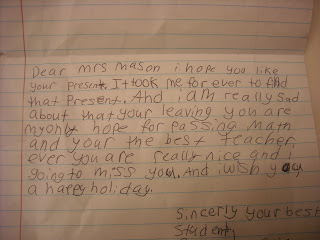 Dear mrs mason i hope you like
your present. It took me for ever to find
that Present. And i am really sad
about that your leaving you are
my only hope for passing math
and your the best teacher,
ever you are really nice and i
going to miss you. And i wish you
a happy holiday.
Sincerly your best
student